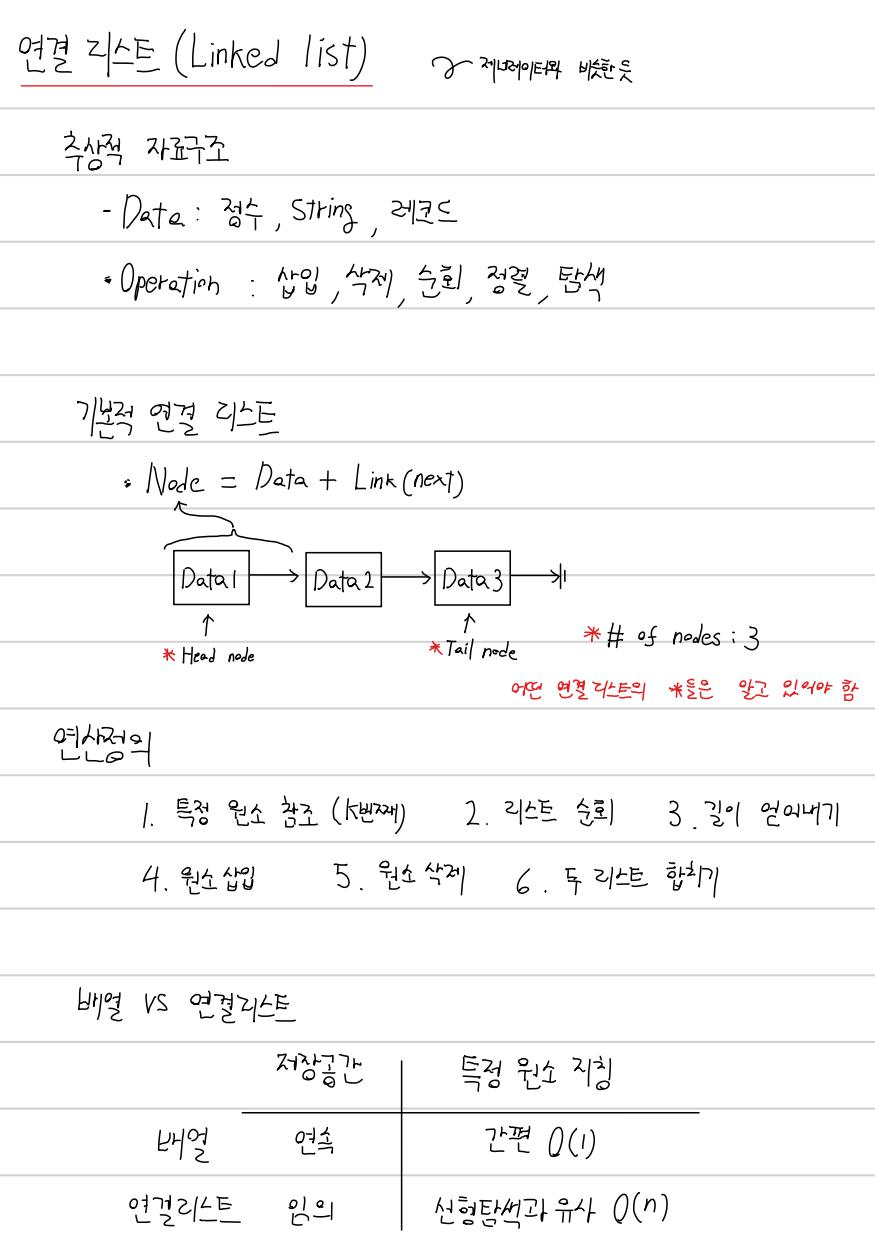 연결 리스트 (Linked list) 제너레이터와 비슷한 듯
추상적 자료구조
- Data : 정수, String, 레코드
• Operation : 삽입, 삭제, 순회, 정렬, 탐색
기본적 연결 리스트
• Node = Data + Link (next)
Data1 Data2 Data3
* Head node * Tail node * # of nodes : 3
어떤 연결 리스트의 *들은 알고 있어야 함
연산정의
1. 특정 원소 참조 (k번째) 2. 리스트 순회 3. 길이 얻어내기
4. 원소 삽입 5. 원소 삭제 6. 두 리스트 합치기
배열 vs 연결리스트
저장공간 특정 원소 지칭
배열 연속 간편 O(1)
연결리스트 임의 선형탐색과 유사 O(n)